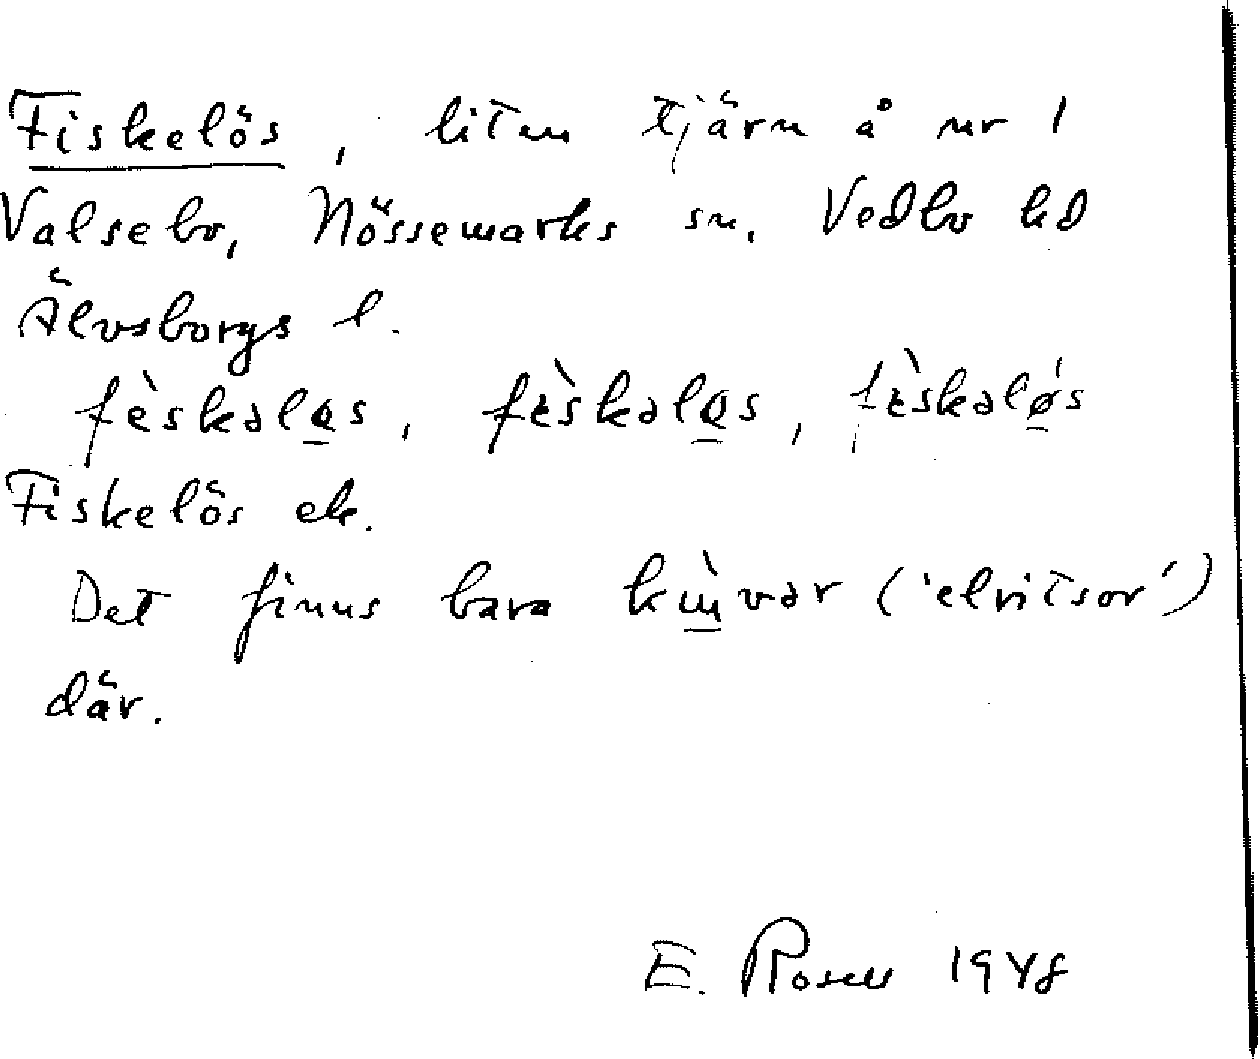 Fiskelös, liten tjärn å nr 1
Valsebo, Nössemarks sn. Vedbo hd
Älvsborgs l.
fèskaløs, fèskaløs, fèskaløs
Fiskelös ek.
Det finns bara kùvar ('elritsor')
där.
E. Rosell 1948